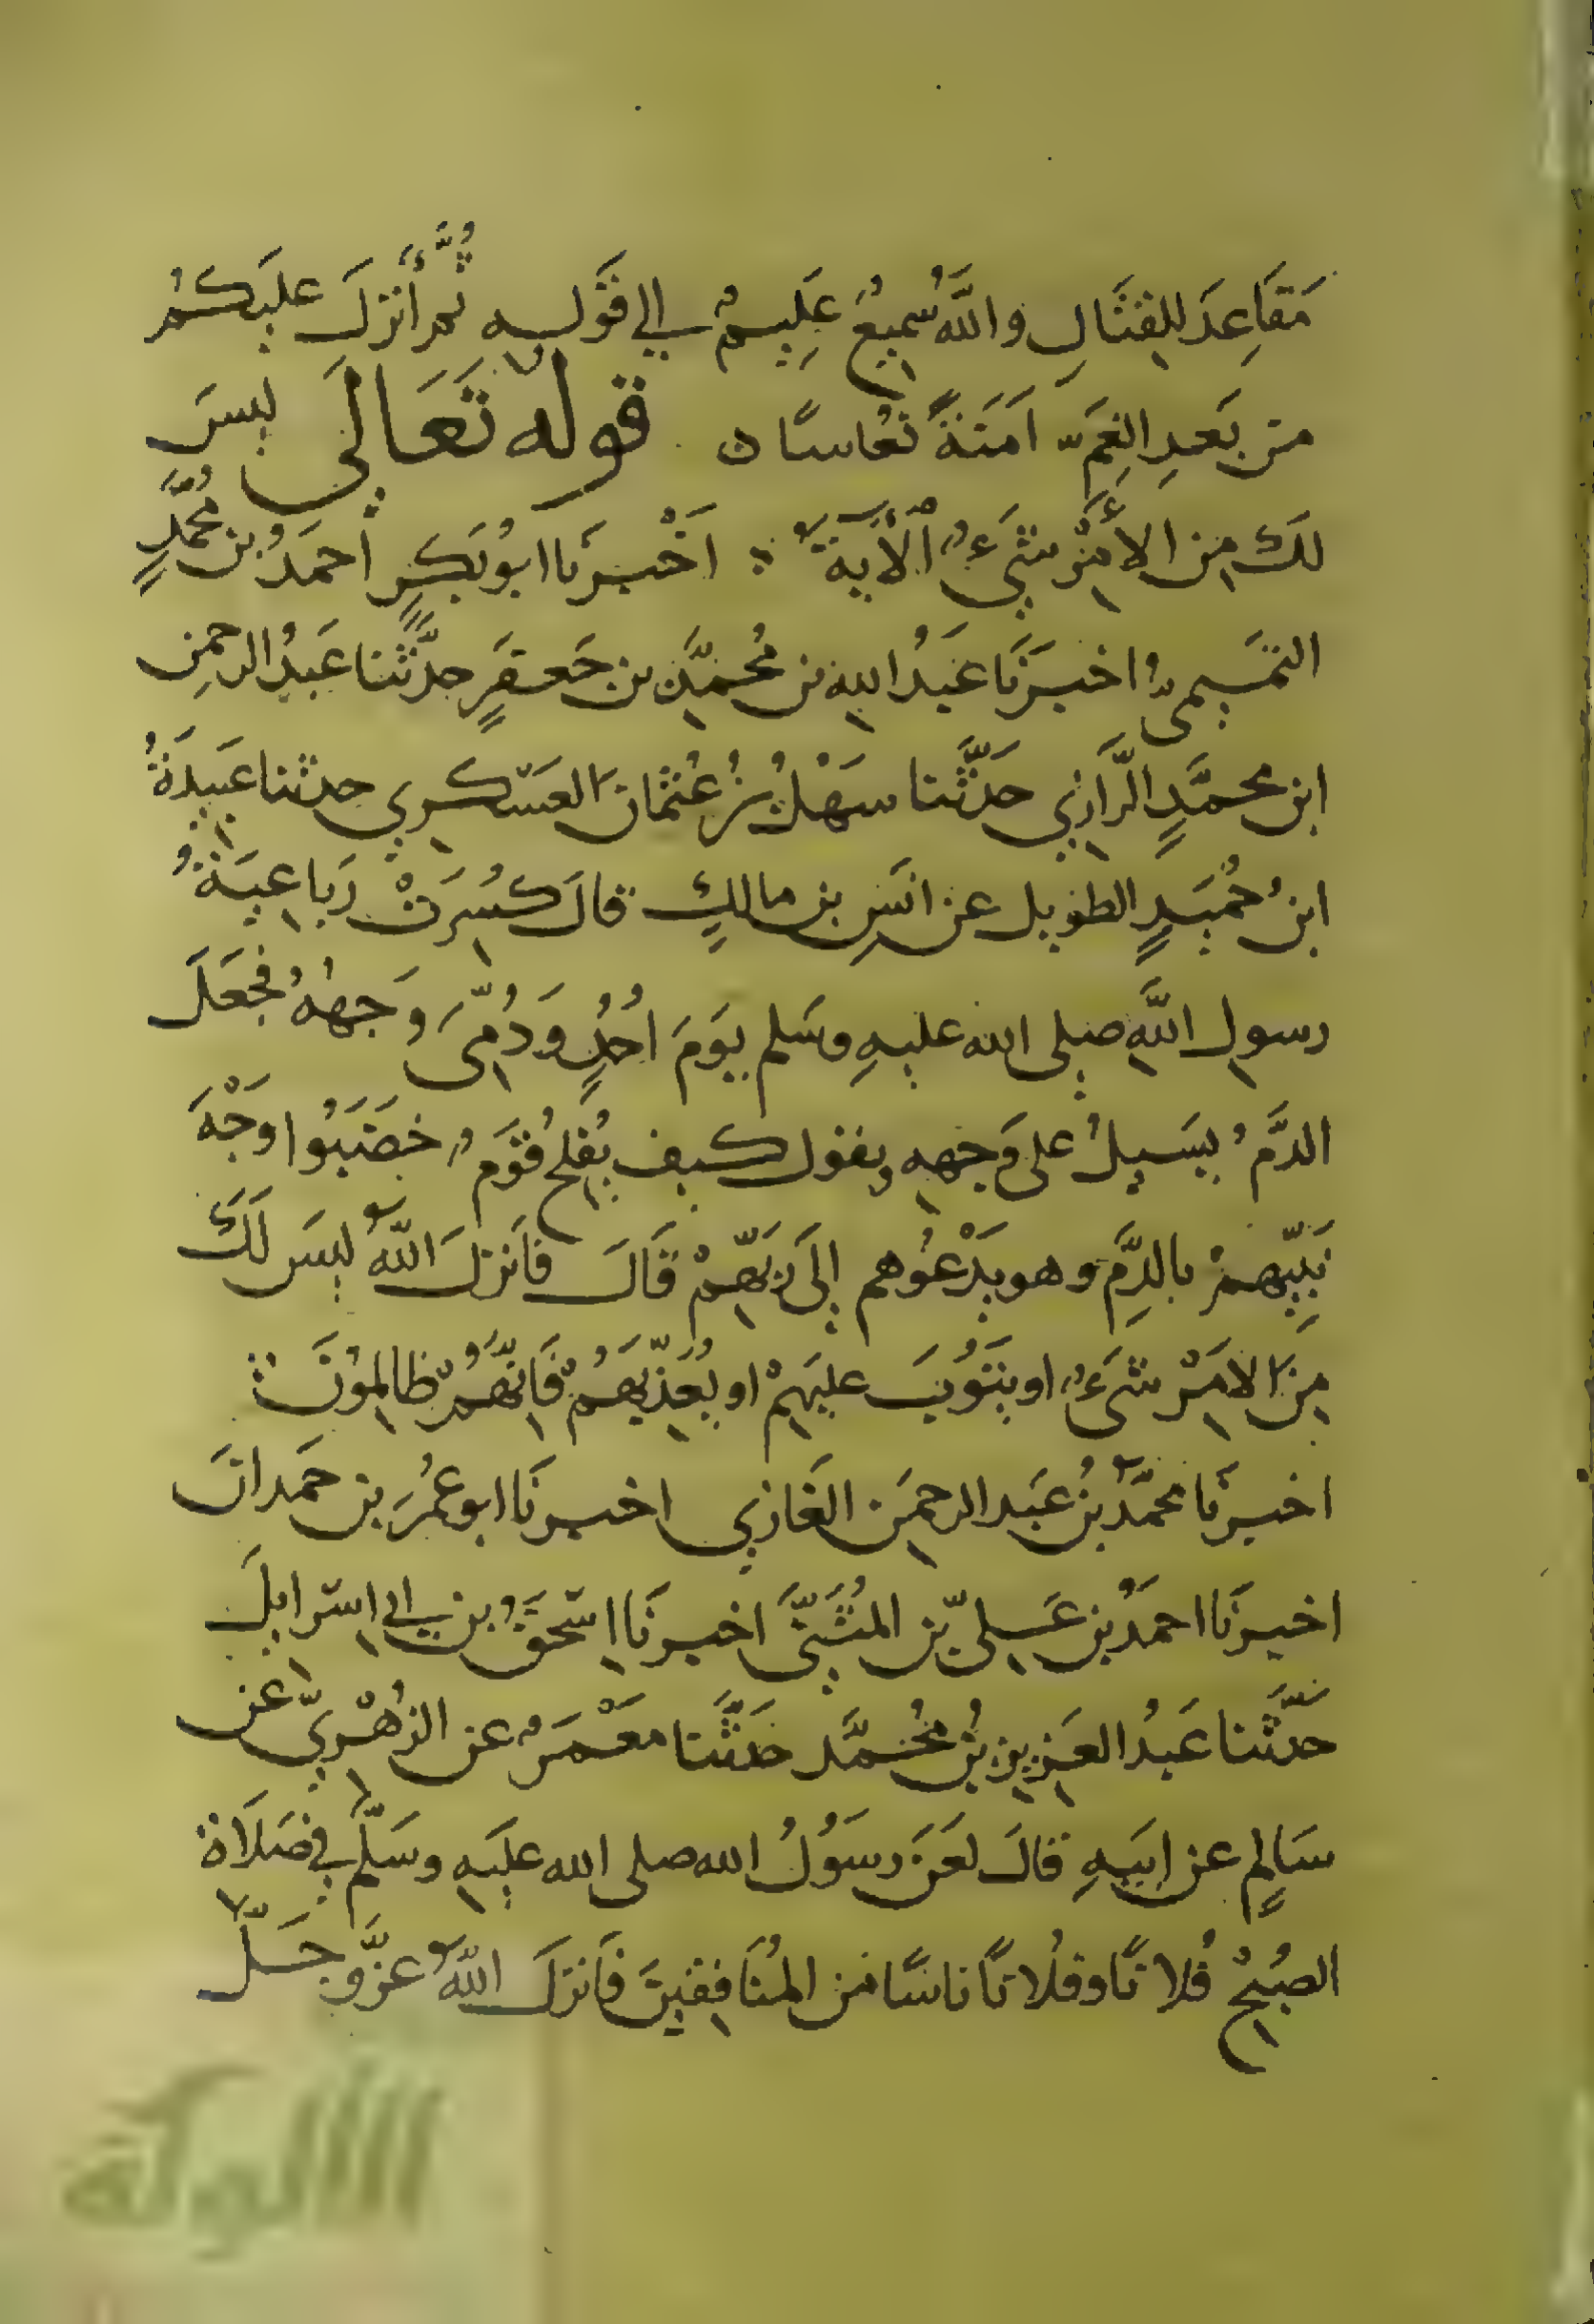 مَقَاعِدَ لِلقِتَالِ وَاللَّهُ سَمِيعٌ عَلِيمٌ الى قَوله ثُمَّ أَنزلَ عليكُم
من بَعدِ الغَمِّ اَمَنَةً نُعاسًا ٥ قوله تَعَالَى لَيسَ
لكَ مِن الأَمْرِ شَيءٌ اْلآيَةَ : اَخْبرَنا ابو بَكرٍ اَحمَدُ بن مُحمَّدٍ
التَّمِيمىُّ اخبَرنَا عَبدُ اللهِ بن مُحمَّدِ بن جَعفَرٍ حدَّثنا عَبدُ الرحمنِ
ابن محمَّدٍ الرَّازِي حَدَّثنا سَهْلُ بنُ عُثمانَ العَسْكرِي حدثنا عَبِيدَةُ
ابنُ حُمَيدٍ الطويل عن انَسِ بن مالكٍ قالَ كُسِرَتْ رَبَاعِيَةُ
رسولِ اللَّهِ صلى الله عليهِ وسَلم يَومَ اُحُدٍ وَدُمِّىَ وَجهُهُ فجعَلَ
الدَّمُ يسَيلُ على وَجهِهِ ويقول كيف يُفلِحُ قَومٌ خَضَبُوا وَجْهَ
نَبِيِّهمْ بالدِّمَ وهو يَدْعُوهم إلَى رَبِّهِمْ قَالَ فَانزلَ اللهُ ليسَ لَكَ
مِنَ الامَرْ شَىءٌ او يَتَوُبَ عليَهِمْ او يُعَذِّبَهُمْ فَاِنَّهُمْ ظالِموُنَ :
اخبرنَا محمَّدُ بنُ عَبد الرحمَنِ الغَازِي اخبرنَا ابو عُمرَ بن حَمدانَ
اخبرَنا احمَدُ بن عَلىِّ بن المُثَنَّى اخبرنَا اِسْحَقُ بن ابى اِسْرايلَ
حَدَّثنا عَبدُ العَزيزِ بنُ مُحمَّد حَدَثَّنا مَعْمَرٌ عن الزُهْرِيِّ عن
سَالِمٍ عن ابيَهِ قالَ لعَنَ رسَوُلُ الله صلى الله عليَهِ وسَلَّم فِي صَلَاة
الصبُحِ فُلانًا وفُلانًا ناسًا من المُنَافِقيِنَ فَانزلَ اللهُ عزَّ وجَلَّ
الألوكة